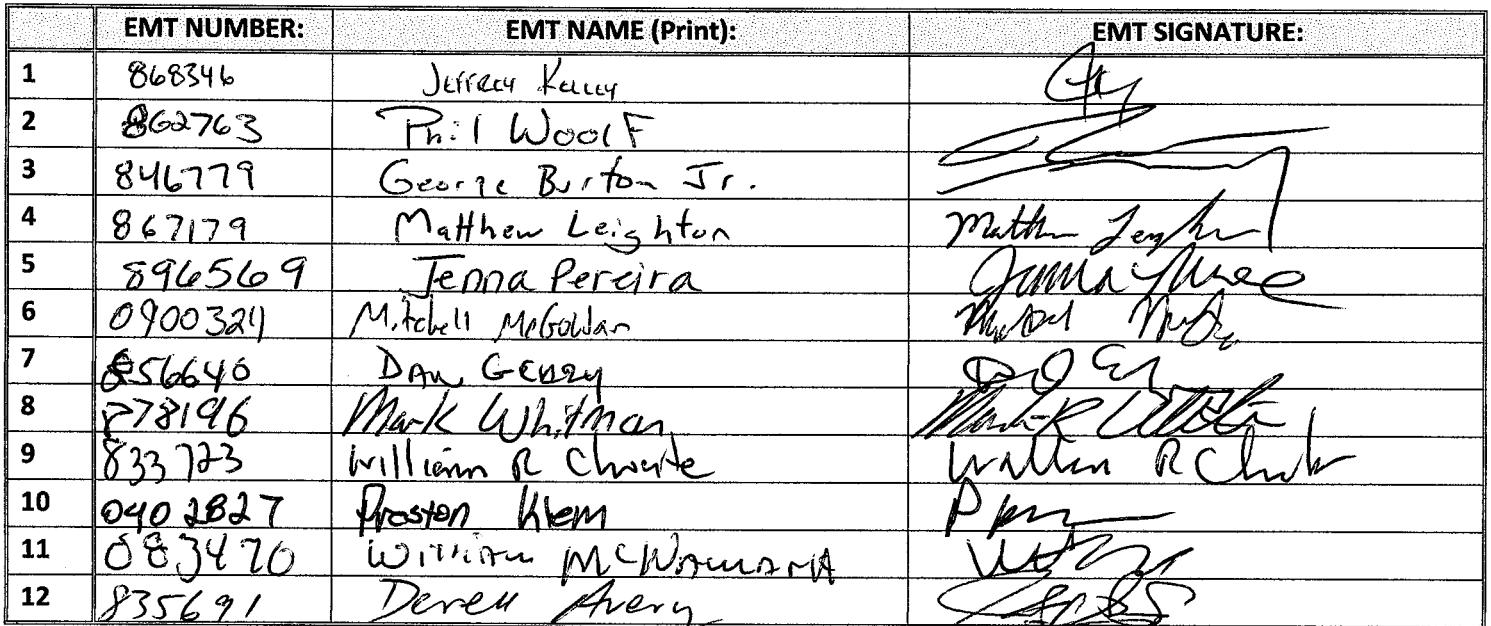 EMT NUMBER: EMT NAME (Print): EMT SIGNATURE:
1 868346 Jeffrey Kelley
2 862763 Phil Woolf
3 846779 George Burton Jr.
4 867179 Matthew Leighton Matthew Leighton
5 896569 Jenna Pereira
6 0900324 Mitchell
7 856640 Dan
8 878196 Mark Whitman Mark R
9 833723 William R Choate William R Choate
10 0402827 Preston Klem P
11 083470 William McNamara
12 835691 Derek Avery